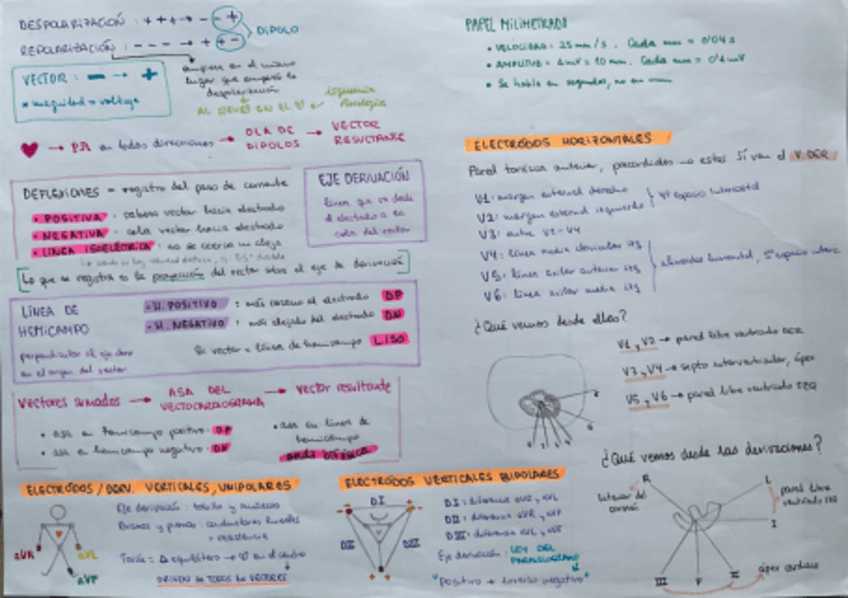 DESPOLARIZACIÓN: + + + → - - +
REPOLARIZACIÓN: - - - → + + -
DIPOLO
empieza en el mismo
lugar que empezó la
despolarización
AL REVÉS EN EL
isquemia
VECTOR: - → +
* magnitud = voltaje
→ PA en todas direcciones → OLA DE DIPOLOS → VECTOR RESULTANTE
DEFLEXIONES = registro del paso de corriente
• POSITIVA: cabeza vector hacia electrodo
• NEGATIVA: cola vector hacia electrodo
• LÍNEA ISOELÉCTRICA: no se acerca ni aleja
EJE DERIVACIÓN
línea que va desde
el electrodo a la
cola del vector
[Lo que se registra es la proyección del vector sobre el eje de derivación]
LÍNEA DE
HEMICAMPO
perpendicular al eje
en el origen del vector
• H. POSITIVO: más cercano al electrodo DP
• H. NEGATIVO: más alejado del electrodo DN
Si vector = línea de hemicampo L.ISO
Vectores sumados → ASA DEL VECTOCARDIOGRAMA → Vector resultante
• asa en hemicampo positivo: DP
• asa en hemicampo negativo: DN
• asa en línea de
hemicampo
onda bifásica
ELECTRODOS/DERIV. VERTICALES, UNIPOLARES
Eje derivación: tobillo y muñecas
Brazos y piernas: conductores lineales
= resistencia
Torax = Δ equilátero → en el centro
ORIGEN DE TODOS LOS VECTORES
aVR
aVL
aVF
ELECTRODOS VERTICALES BIPOLARES
DI
DII
DIII
DI: diferencia aVR, aVL
DII: diferencia aVR, aVF
DIII: diferencia aVL, aVF
Eje derivación: LEY DEL
PARALELOGRAMO
"Positivo + inverso negativo"
PAPEL MILIMETRADO
• VELOCIDAD: 25 mm/s. Cada mm = 0'04 s
• AMPLITUD: 1 mV = 10 mm. Cada mm = 0'1 mV
• Se habla en segundos, no en mm
ELECTRODOS HORIZONTALES
Pared torácica anterior, precordiales → estas SÍ ven el V. DER
V1: margen esternal derecho
V2: margen esternal izquierdo
4º espacio intercostal
V3: entre V2-V4
V4: línea media clavicular izq
V5: línea axilar anterior izq
V6: línea axilar media izq
horizontal, 5º espacio interc.
¿Qué vemos desde ellos?
V1, V2 → pared libre ventrículo DER
V3, V4 → septo interventricular, ápex
V5, V6 → pared libre ventrículo IZQ
¿Qué vemos desde las derivaciones?
R
L
I
pared libre
ventrículo izq
III
F
II
ápex cardiaco